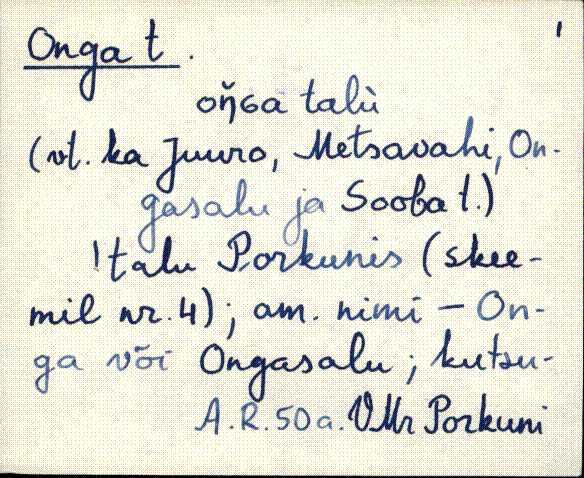 Onga t. 1
oŋ̆ɢa talù
(vt. ka Juuro, Metsavahi, On-
gasalu ja Sooba t.)
! talu Porkunis (skee-
mil nr. 4); am. nimi – On-
ga või Ongasalu; kutsu-
A.R. 50 a. VMr Porkuni